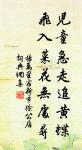 兒童急走追黃蝶
飛入菜花無處尋
楊萬里宿新市徐公店
詞典網集